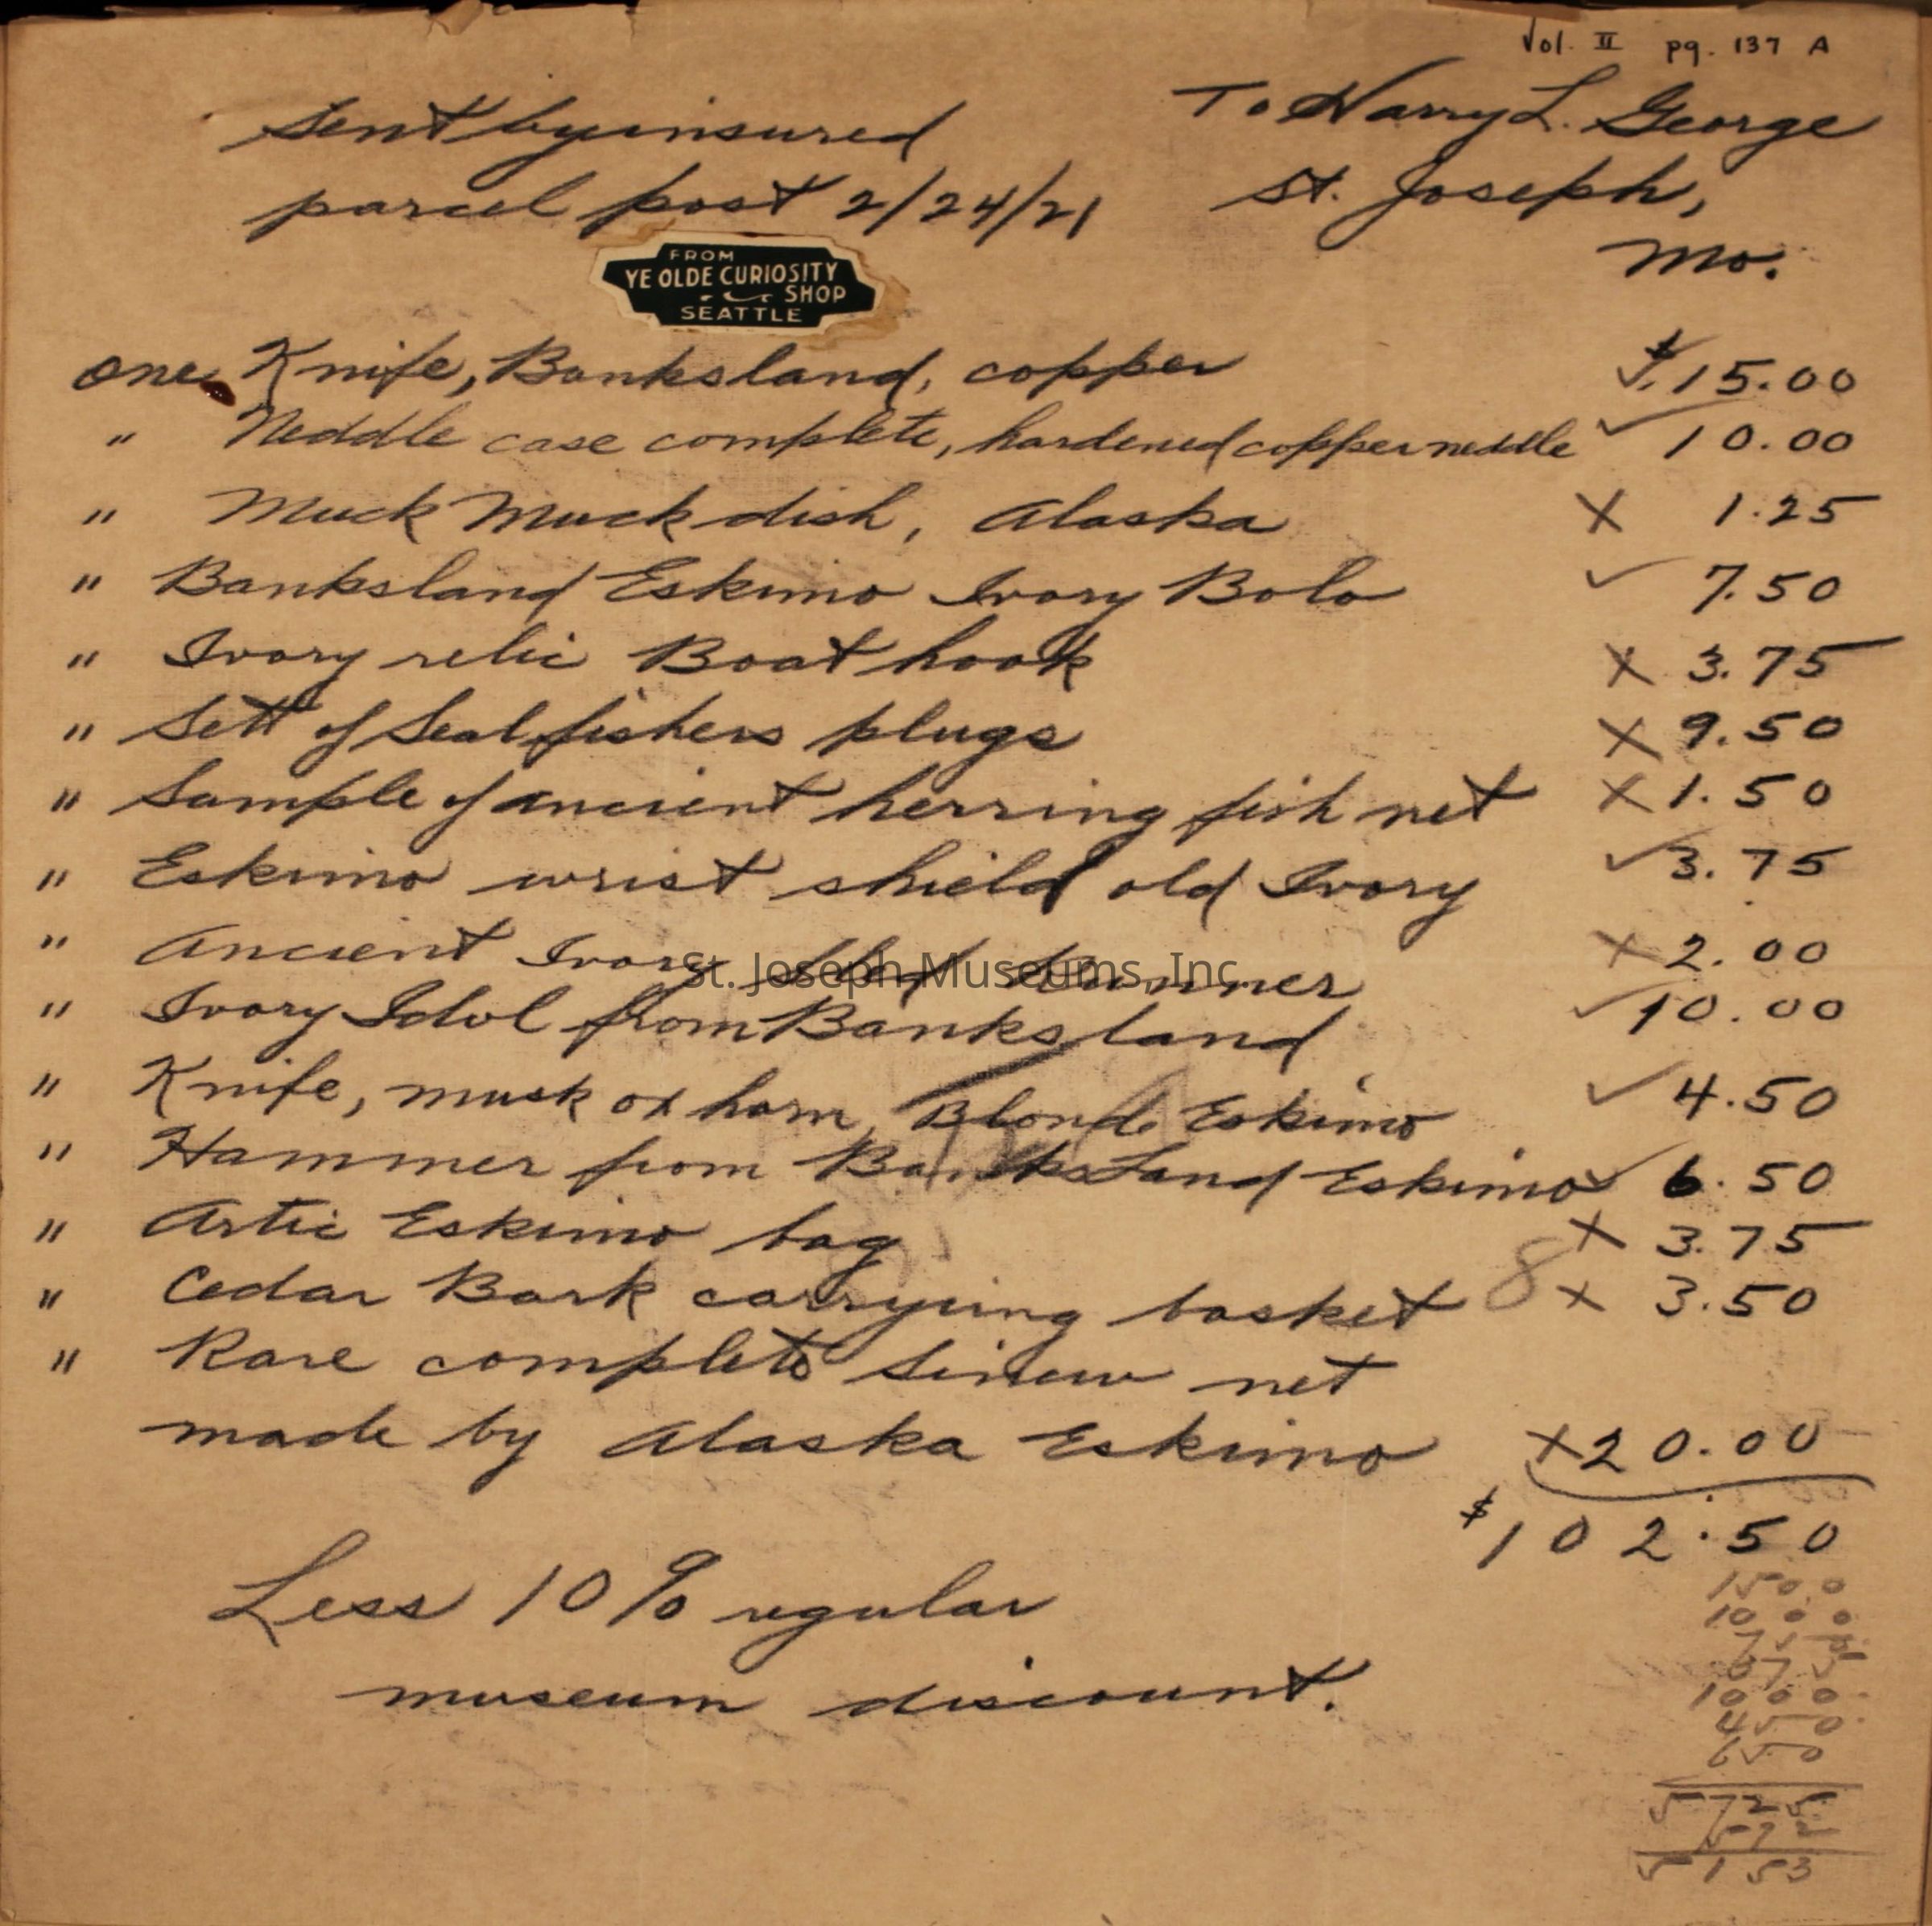 Vol. II pg. 137 A
Sent by insured
parcel post 2/24/21
To Harry L. George
St. Joseph,
Mo.
FROM
YE OLDE CURIOSITY
SHOP
SEATTLE
one Knife, Banksland, copper $15.00
" Neddle case complete, hardened copper neddle ✓ 10.00
" Muck Muck dish, Alaska X 1.25
" Banksland Eskimo Ivory Bolo ✓ 7.50
" Ivory relic Boat hook X 3.75
" Sett of Seal fishers plugs X 9.50
" Sample of ancient herring fish net X 1.50
" Eskimo wrist shield old Ivory ✓ 3.75
" Ancient Ivory Sled Runner X 2.00
" Ivory Idol from Banksland ✓ 10.00
" Knife, musk ox horn, Blonde Eskimo ✓ 4.50
" Hammer from Banks Land Eskimo ✓ 6.50
" Artic Eskimo bag X 3.75
" Cedar Bark carrying basket 8 X 3.50
" Rare complete Sinew net
made by Alaska Eskimo X 20.00
$102.50
Less 10% regular
museum discount.
1500
1000
750
375
1000
450
650
5725
572
5153
St. Joseph Museums, Inc.